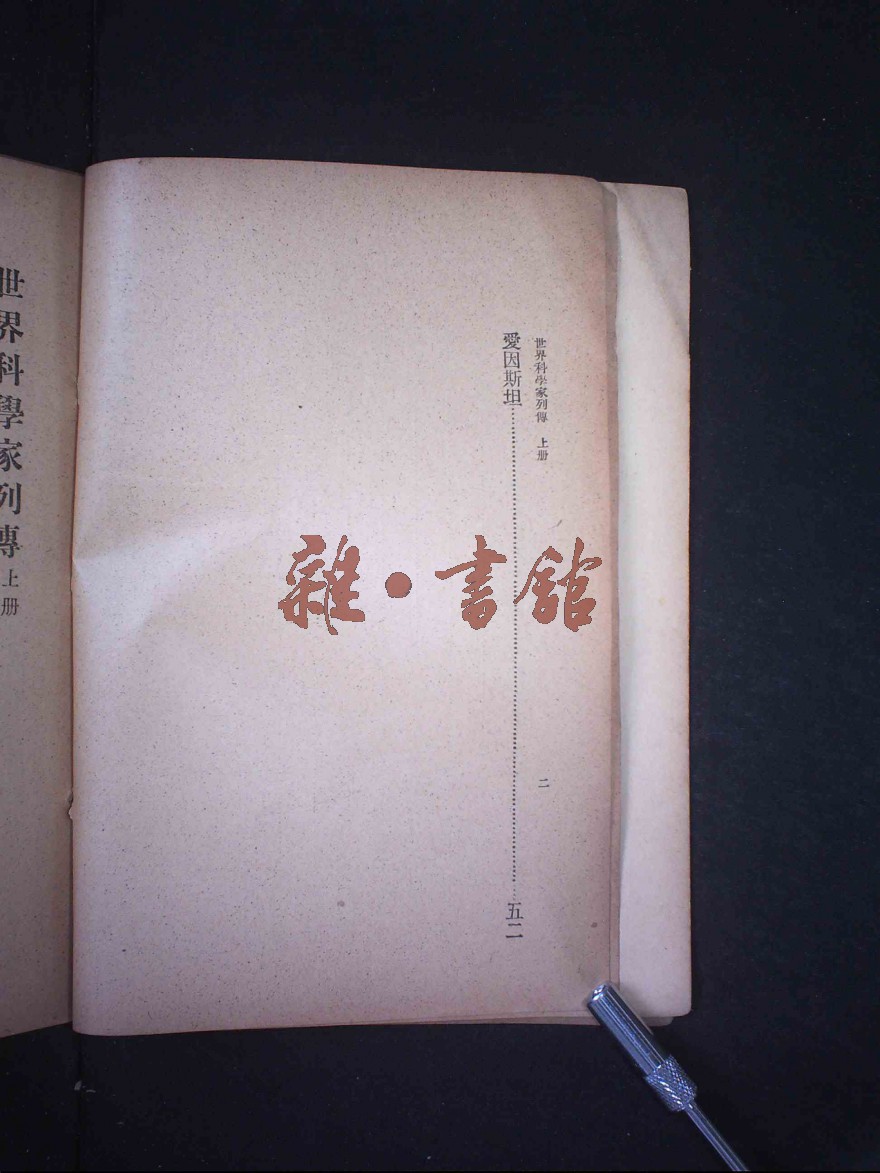 世界科學家列傳　上册
二
愛因斯坦……五二
雜·書館
世界科學家列傳上册